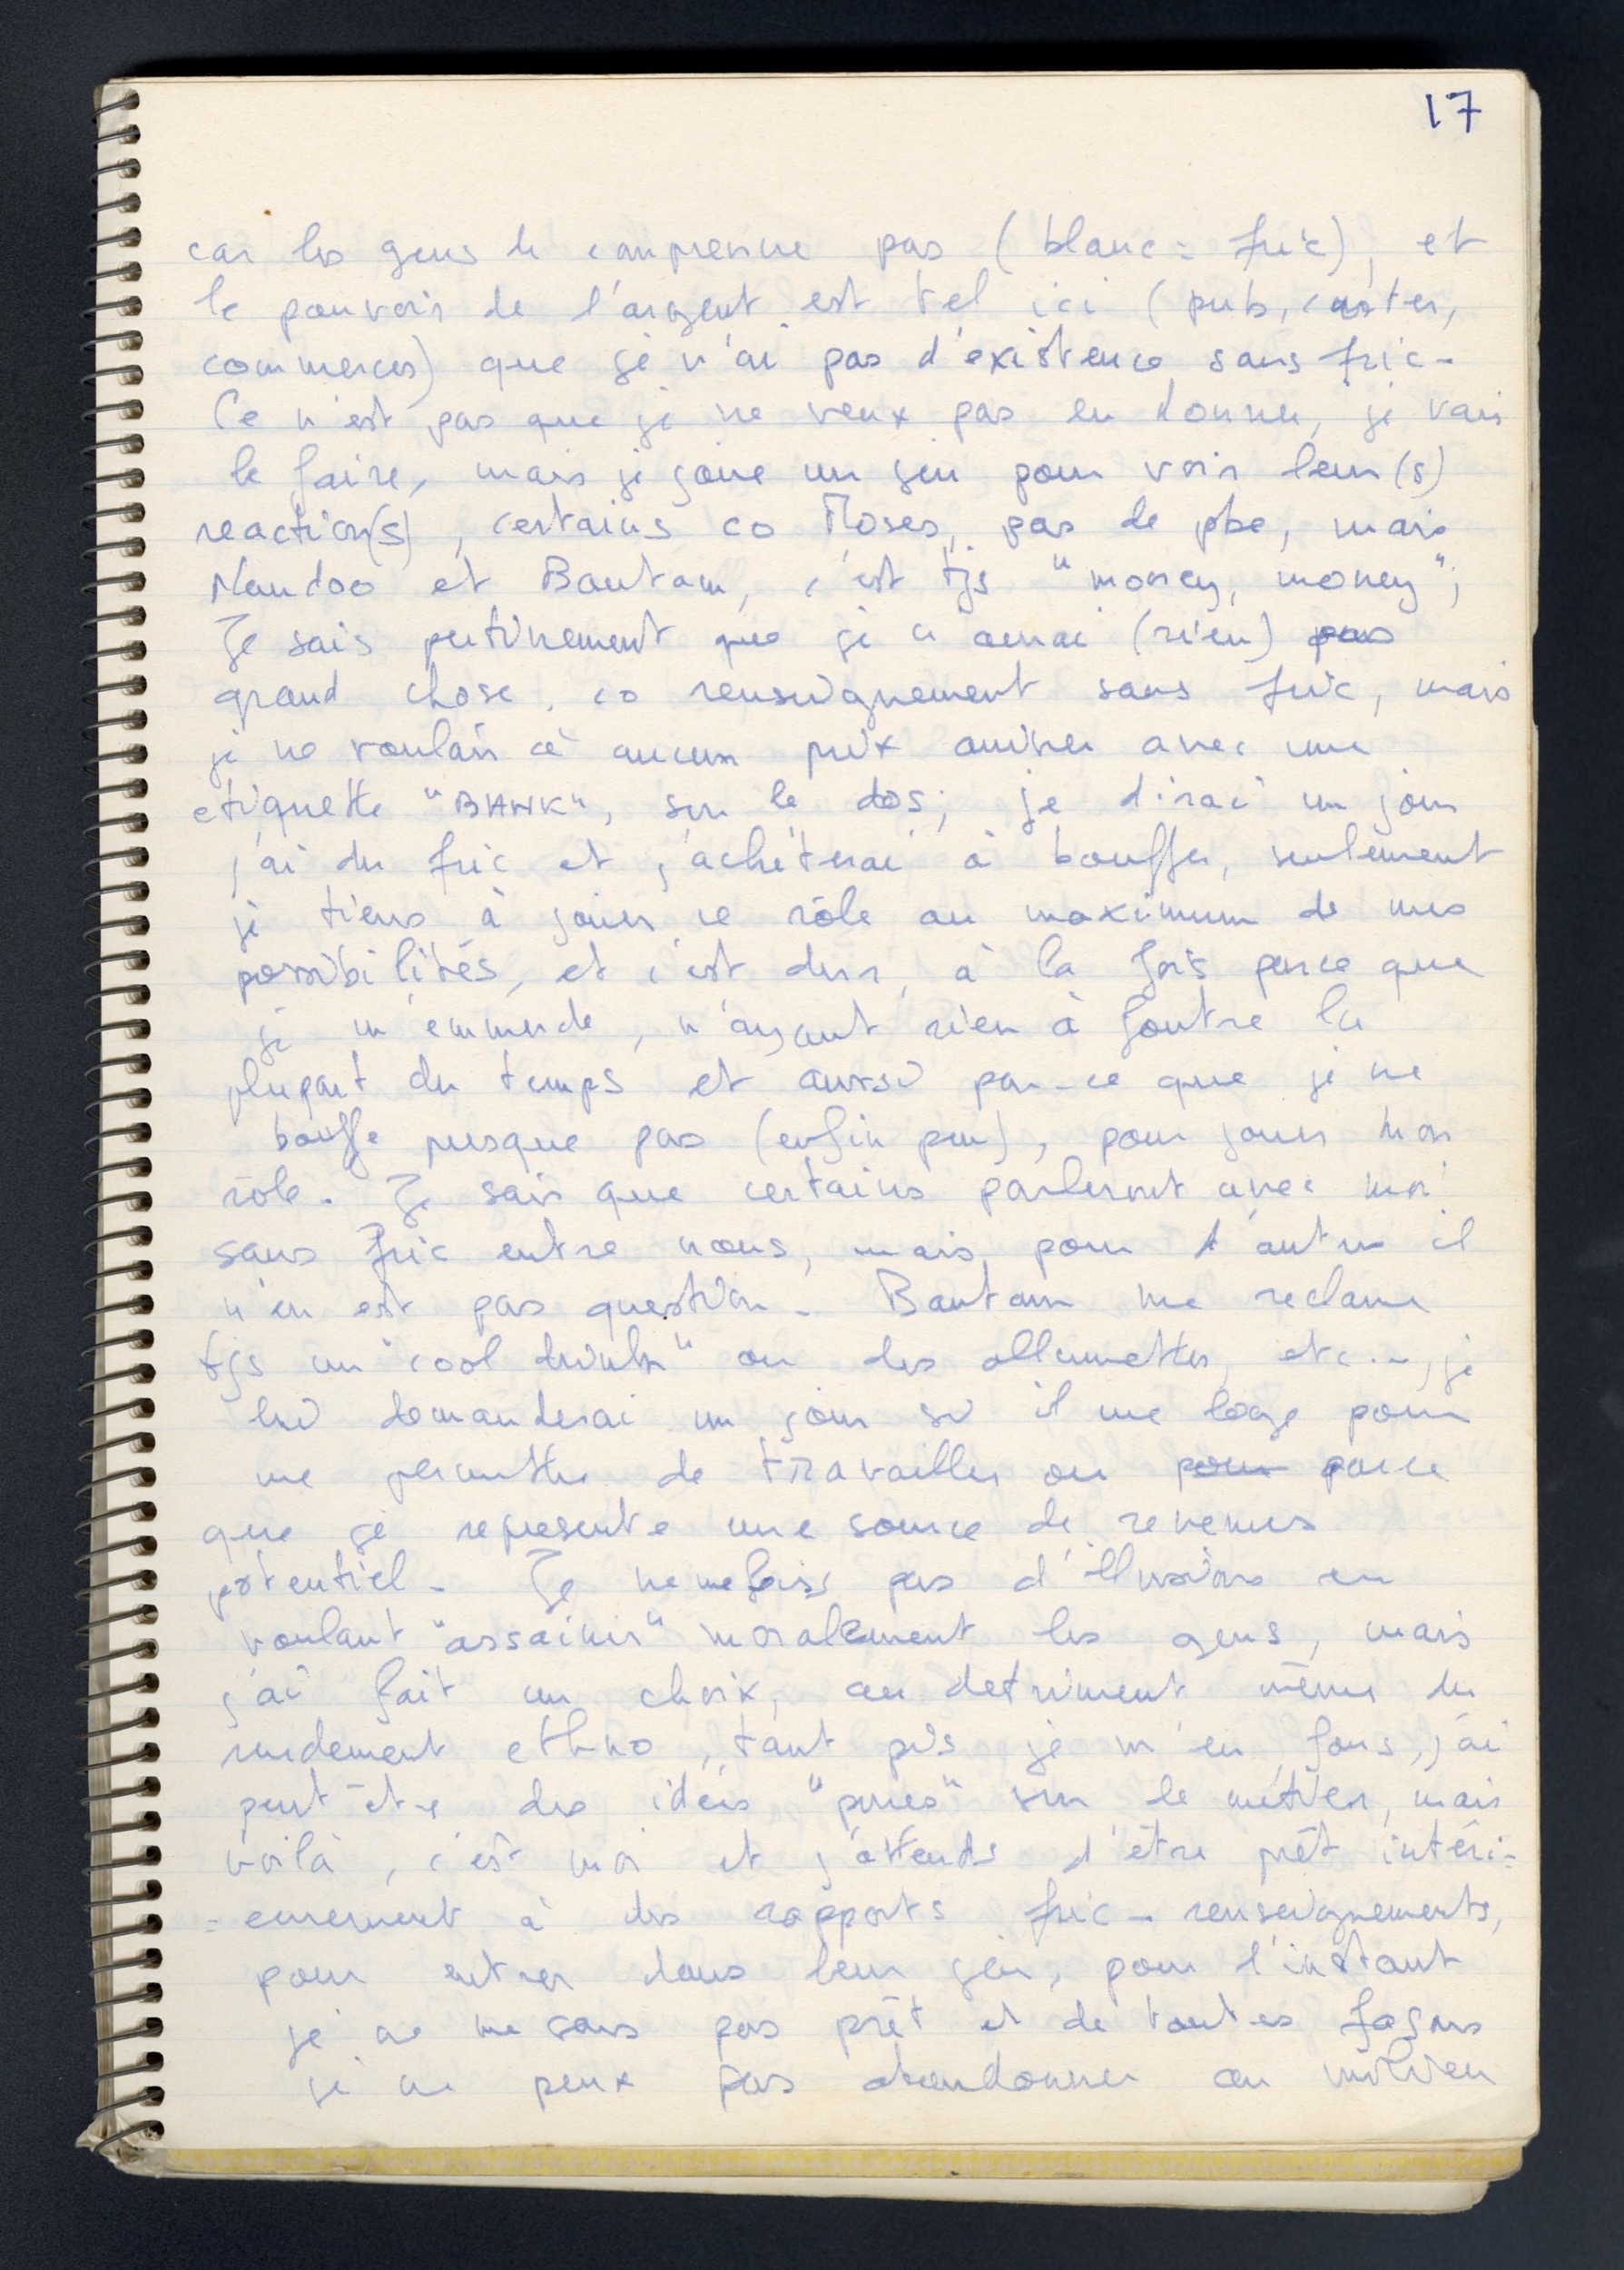 17
car les gens ne comprenne pas (blanc = fric), et
le pouvoir de l'argent est tel ici (pub, caster,
commerces) que je n'ai pas d'existence sans fric -
Ce n'est pas que je ne veux pas en donner, je vais
le faire, mais je joue un jeu pour voir leur(s)
reaction(s), certains co Moses, pas de pbe, mais
Nandoo et Bantam, c'est tjs "money, money";
Je sais pertinement que je n'aurai (rien) pas
grand chose, co renseignement sans fric, mais
je ne voulais à aucun prix arriver avec une
etiquette "BANK", sur le dos; je dirai un jour
j'ai du fric et j'achèterai à bouffer, seulement
je tiens à jouer ce rôle au maximum de mes
possibilités, et c'est dur, à la fois parce que
je m'emmerde, n'ayant rien à foutre la
plupart du temps et aussi par-ce que je ne
bouffe presque pas (enfin peu), pour jouer mon
role. Je sais que certains parleront avec moi
sans fric entre nous, mais, pour d'autres il
n'en est pas question - Bantam me reclame
tjs un "cool drinks" ou des allumettes, etc..., je
lui demanderai un jour si il me loge pour
me permettre de travailler ou pour parce
que je represente une source de revenus
potentiel - Je ne me fais pas d'illusions en
voulant "assainir" moralement les gens, mais
j'ai fait un choix, au detriment même du
rendement ethno, tant pis je m'en fous, j'ai
peut être des idées "pures" sur le métier, mais
voilà, c'est moi et j'attends d'être prêt intéri=
=eurement à des rapports fric - renseignements,
pour entrer dans leur jeu, pour l'instant
je ne me sens pas prêt et de toutes façons
je ne peux pas abandonner au milieu